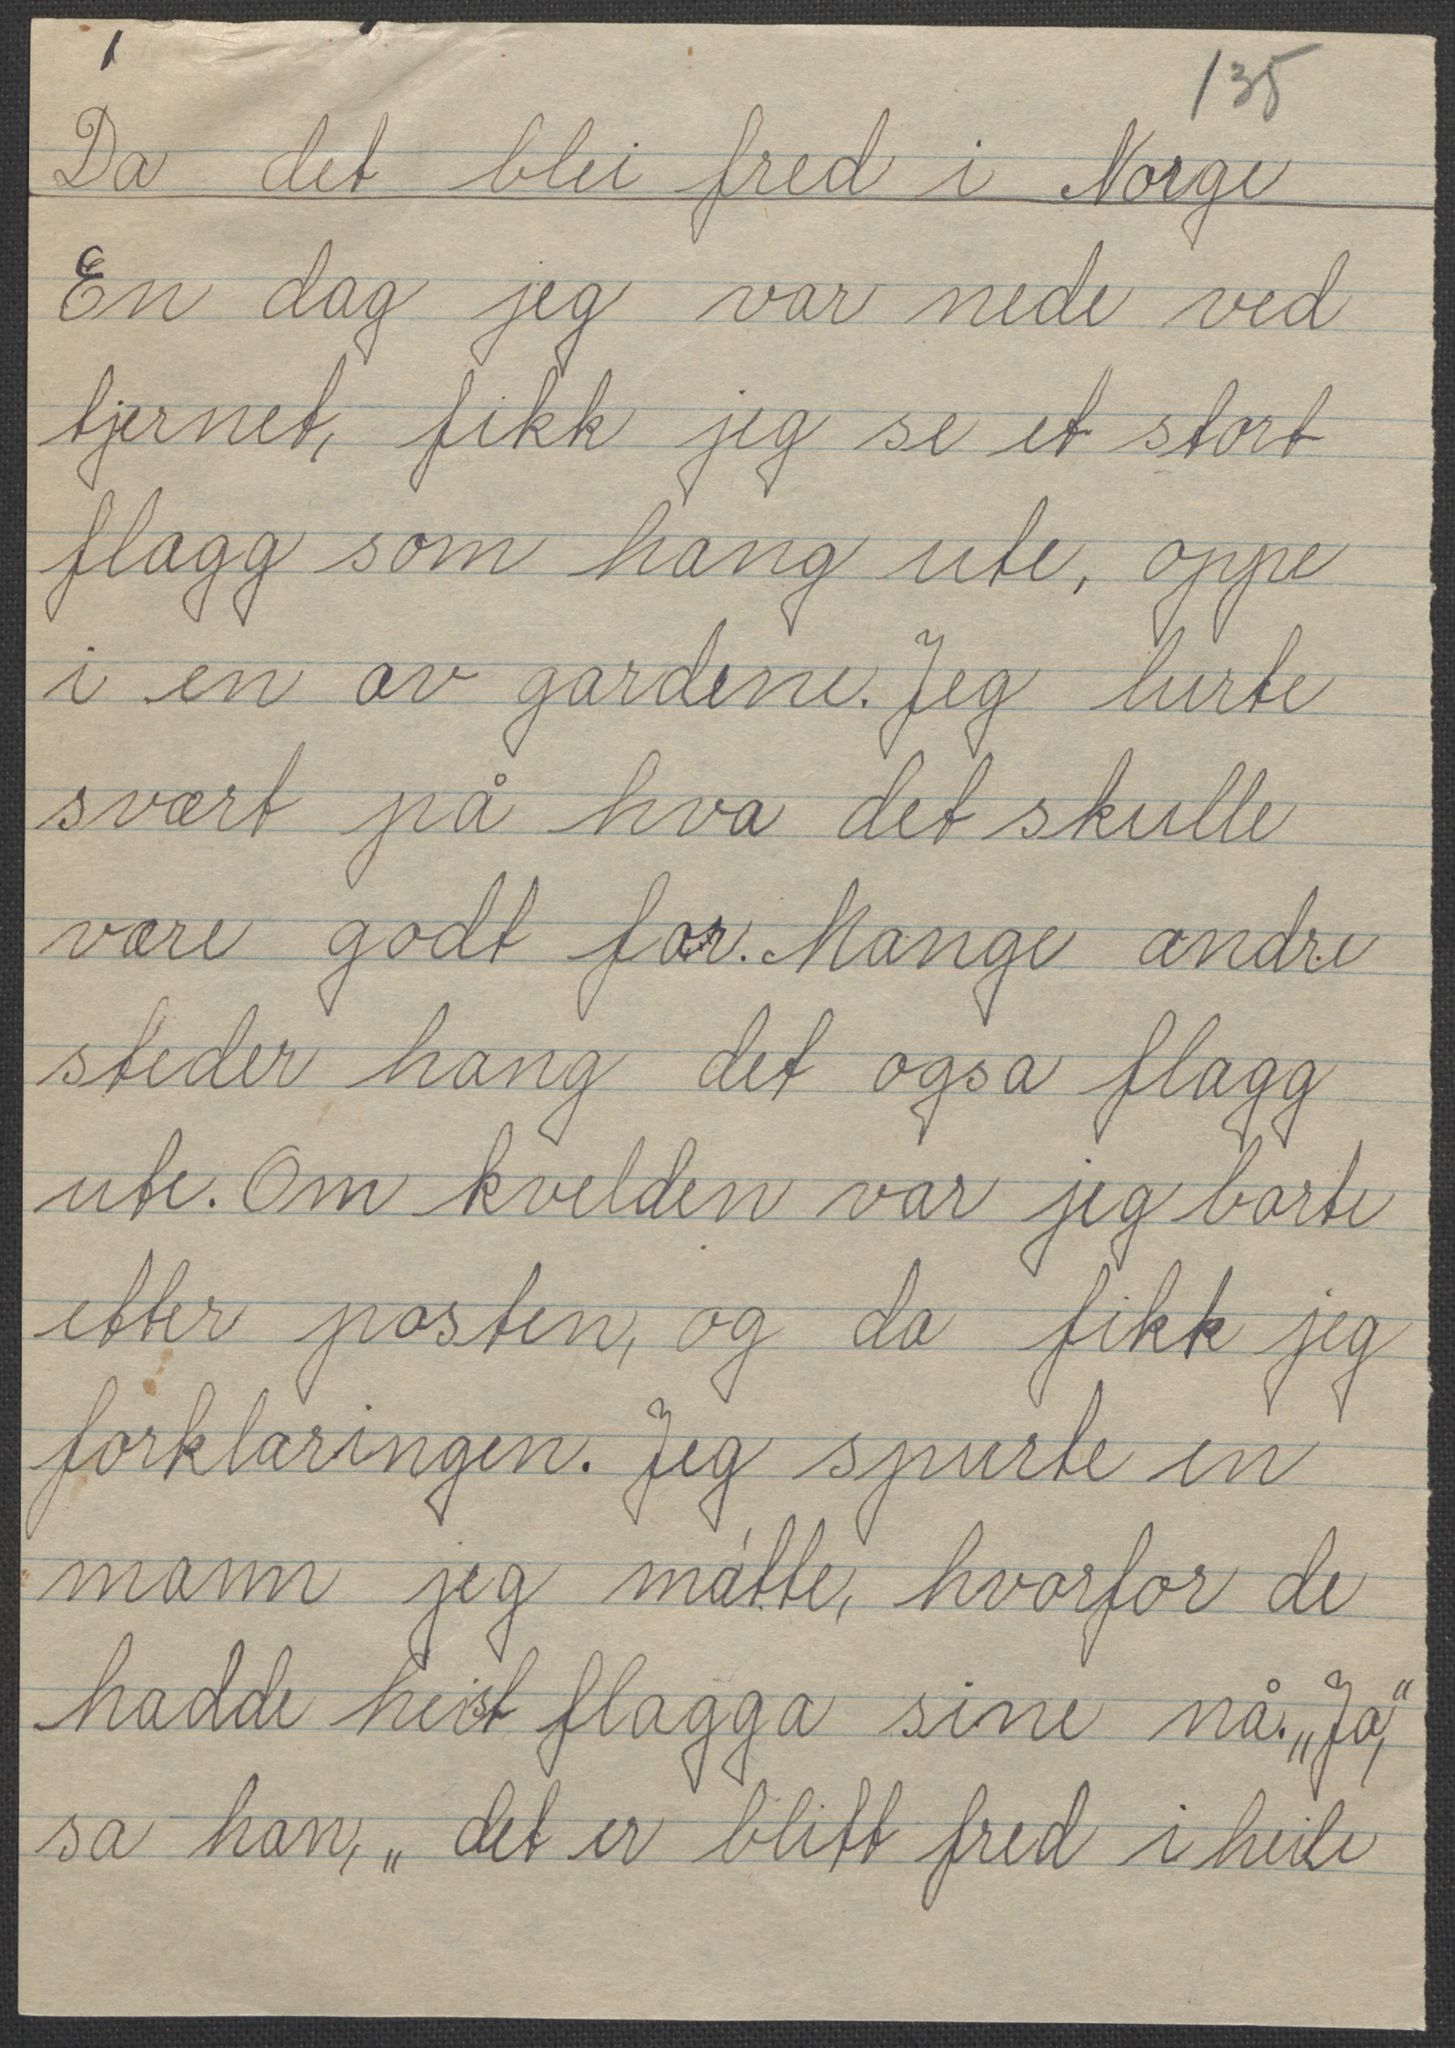 1
135
Da det blei fred i Norge
En dag jeg var nede ved
tjernet, fikk jeg se et stort
flagg som hang ute, oppe
i en av gardene. Jeg lurte
svært på hva det skulle
være godt for. Mange andre
steder hang det ogsa flagg
ute. Om kvelden var jeg borte
etter posten, og da fikk jeg
forklaringen. Jeg spurte en
mann jeg måtte, hvorfor de
hadde heist flagga sine nå. „Ja,“
sa han, „det er blitt fred i heile